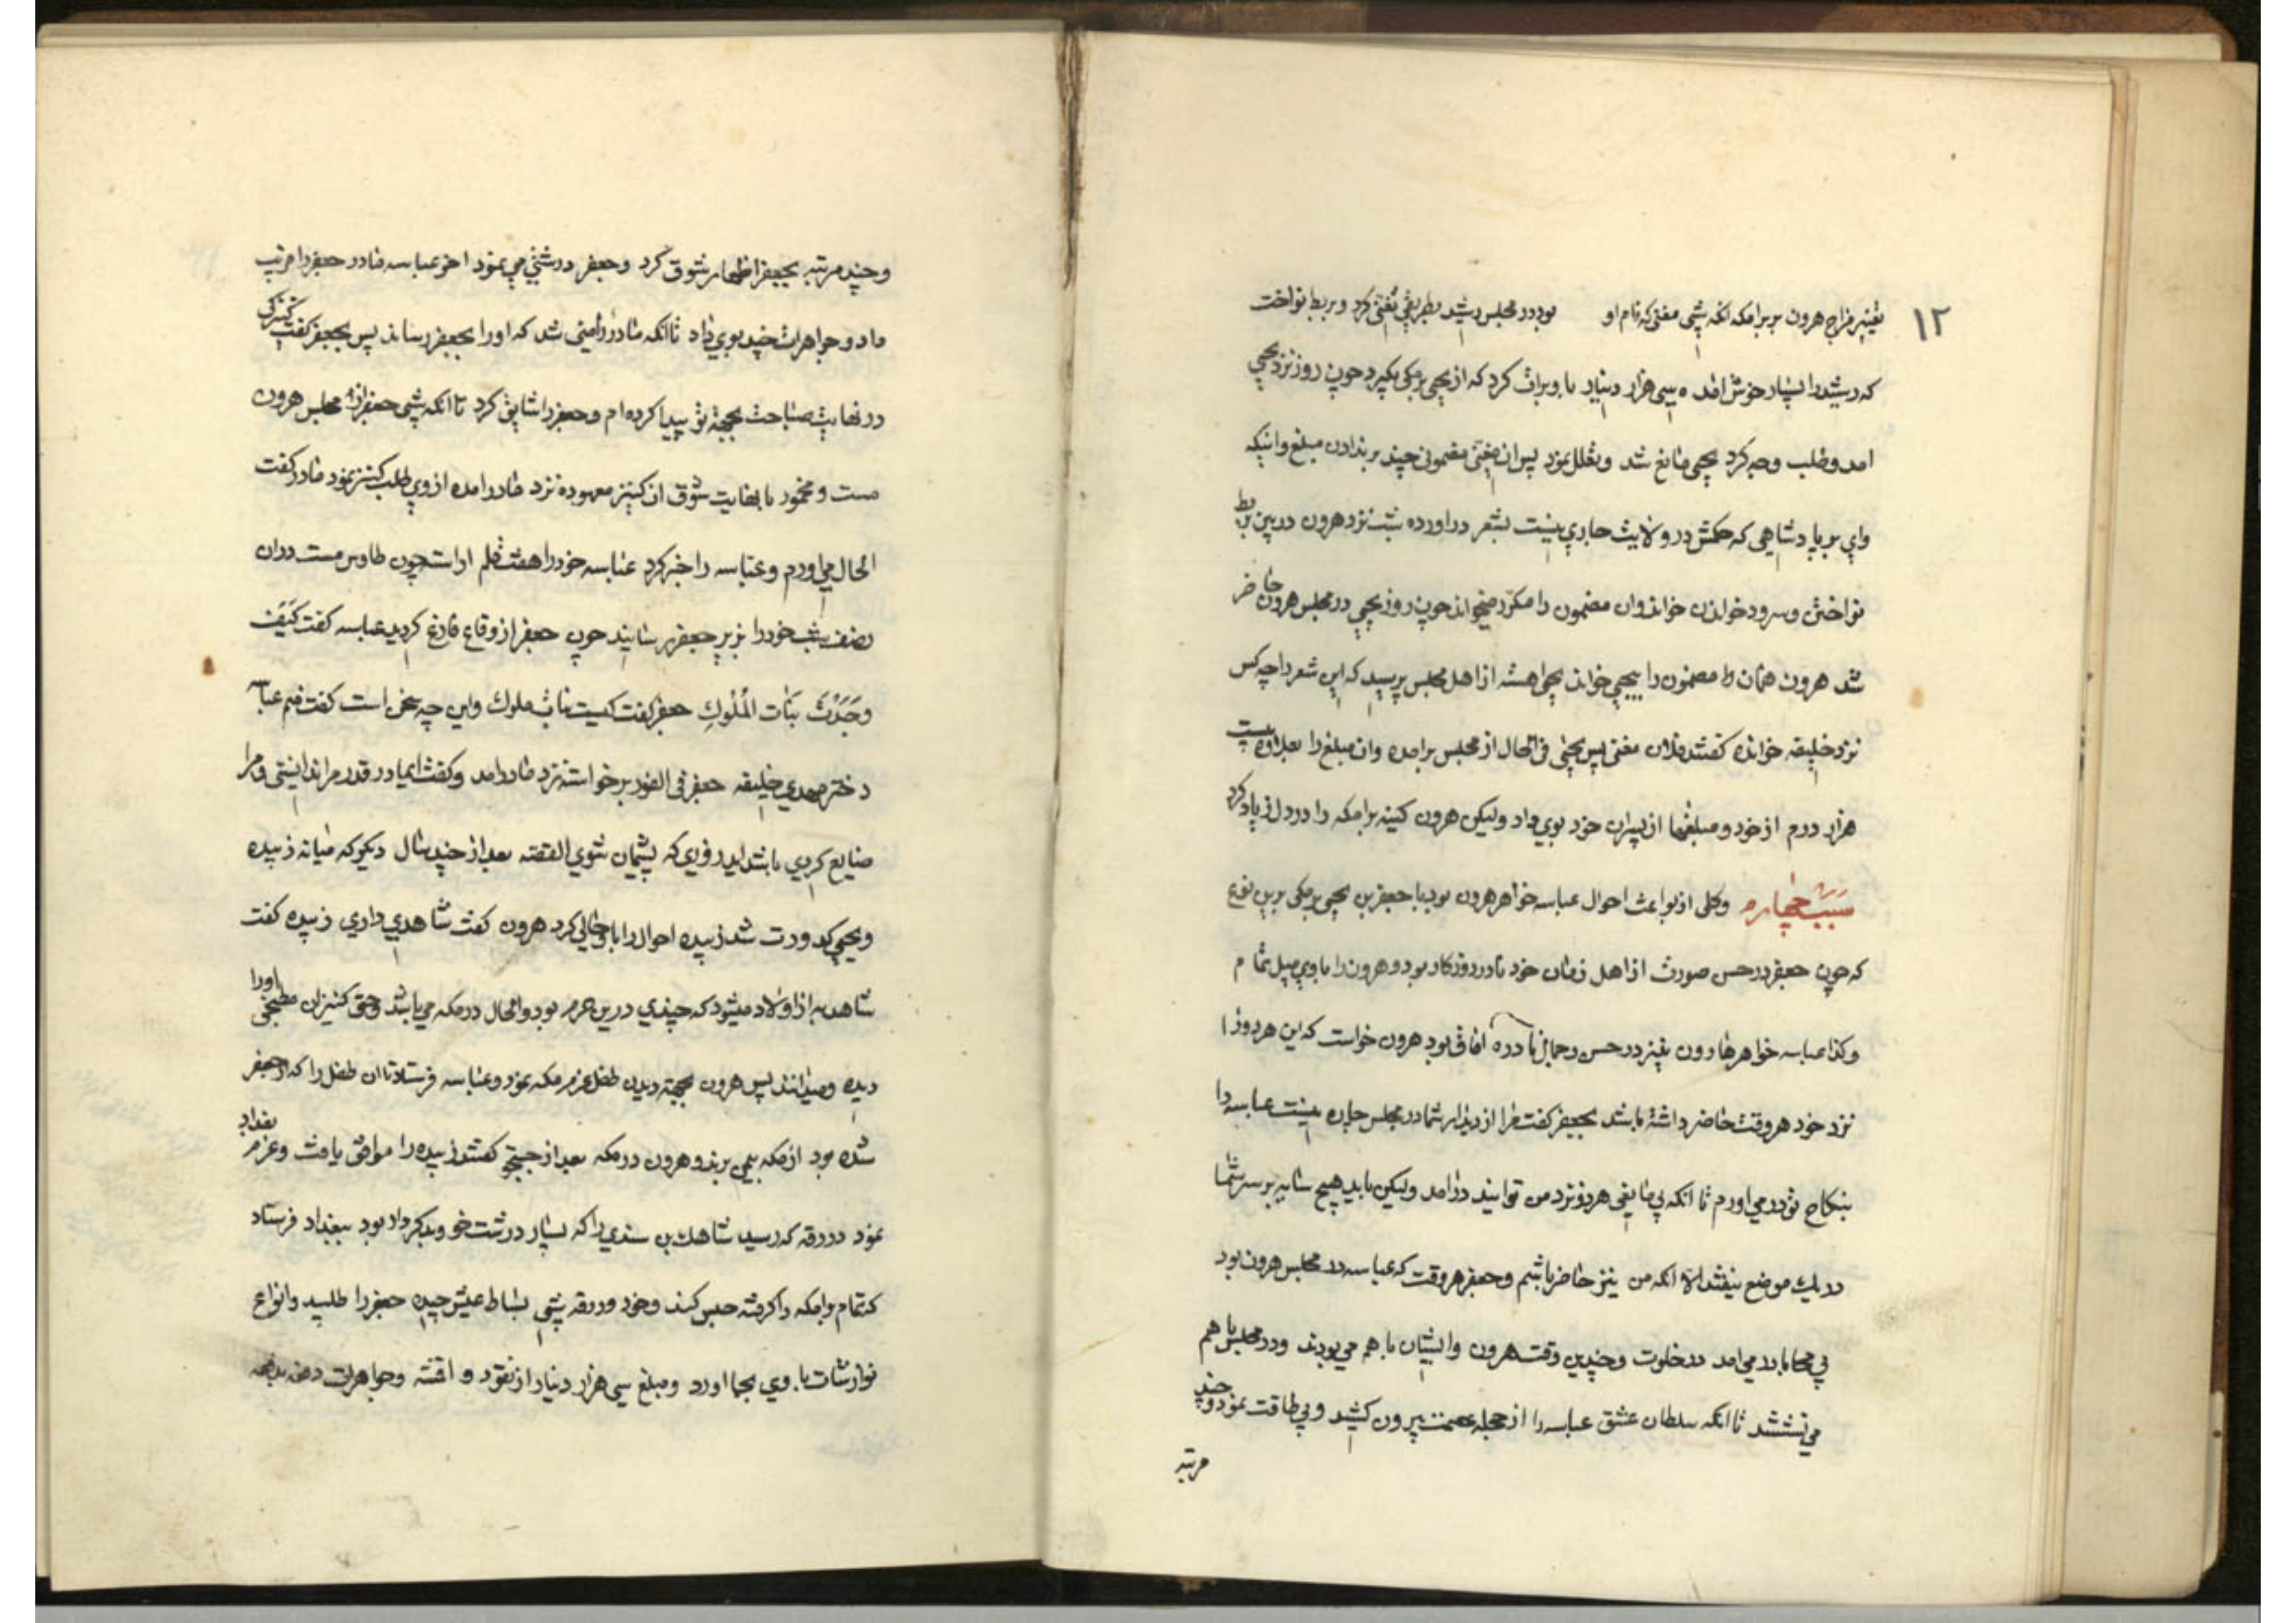 ١٢
تغییر مزاج هرون بر برامکه انکه شبی مغنی که نام او بود در مجلس رشید بطریقی تغنی کرد و بربط نواخت
که رشید را بسیار خوش امد ه سی هزار دینار با و برات کرد که از یحیی برمکی بکیرد چون روز نزد یحیی
امد و طلب وجه کرد یحیی مانع شد و تعلل نمود پس ان مغنی مضمونی چند بر ندادن مبلغ و اینکه
وای بر پادشاهی که حکمش در ولایت جاری نیست بشعر در اورده شب نزد هرون در بین بربط
نواختن و سرود خواندن خواند وان مضمون را مکرر میخواند چون روز یحیی در مجلس هرون حاضر
شد هرون همان مضمون را بیحیی خواند یحیی اهسته از اهل مجلس پرسید که این شعر را چه کس
نزد خلیفه خوانده کفتند فلان مغنی پس یحیی فی الحال از مجلس برامده وان مبلغ را بعلاوه بیست
هزار درم از خود و مبلغها از پسران خود بوی داد ولیکن هرون کینه برامکه را در دل زیاد کرد
سبب چهارم وکلی از بواعث احوال عباسه خواهر هرون بود با جعفر بن یحیی برمکی برین نوع
که چون جعفر در حسن صورت از اهل زمان خود نادر روزکار بود و هرون را با وی میل تمام
وکذا عباسه خواهر هارون نیز در حسن وجمال نادره افاق بود هرون خواست که این هر دو را
نزد خود هر وقت حاضر داشته باشد بجعفر کفت مرا از دیدار شما در مجلس چاره نیست عباسه را
بنکاح تو در می اورم تا انکه بی مانعی هر دو نزد من توانید درامد ولیکن باید هیچ سایه بر سر شما
در یک موضع نیفتد الا انکه من نیز حاضر باشم وجعفر هر وقت که عباسه در مجلس هرون بود
بی محابا در می امد در خلوت وچندین وقت هرون وایشان با هم می بودند ودر مجلس با هم
می نشستند تا انکه سلطان عشق عباسه را از حجله عصمت بیرون کشید و بی طاقت نمود وچند
مرتبه
وچند مرتبه بجعفر اظهار شوق کرد وجعفر درشتی می نمود اخر عباسه مادر جعفر را فریب
داد وجواهرات چند بوی داد تا انکه مادر راضی شد که اورا بجعفر رساند پس بجعفر کفت کنیزکی
در نهایت صباحت بجهة تو پیدا کرده ام وجعفر را شایق کرد تا انکه شبی جعفر از مجلس هرون
مست ومخمور با نهایت شوق ان کنیز معهوده نزد مادر امده از وی طلب کنیز نمود مادر کفت
الحال می اورم وعباسه را خبر کرد عباسه خود را هفت قلم اراست چون طاوس مست دران
نصف شب خود را بزیر جعفر رسانید چون جعفر از وقاع فارغ کردید عباسه کفت کَیفَ
وجَدْتَ بَنات المُلوكِ جعفر کفت کیست بنات ملوك واین چه سخن است کفت منم عباسه
دختر مهدی خلیفه جعفر فی الفور برخواسته نزد مادر امد وکفت ایمادر قدر مرا ندانستی ومرا
ضایع کردی باشد اید روزی که پشیمان شوی القصه بعد از چند سال دیکر که میانه زبیده
ویحیی کدورت شد زبیده احوال را حالی کرد هرون کفت شاهدی داری زبیده کفت
شاهد به از اولاد میشود که چندی درین حرم بود والحال در مکه می باشد وحتی کنیزان مطبخی اورا
دیده ومیدانند پس هرون بجهته دیدن طفل عزم مکه نمود وعباسه فرستاد تا ان طفل را که از جعفر
شده بود از مکه بیمن برند وهرون در مکه بعد از جستجو کفته زبیده را موافق یافت وعزم بغداد
نمود در رقه که رسید شاهك بن سندی را که بسیار درشت خو وبدکردار بود ببغداد فرستاد
که تمام برامکه را کرفته حبس کند وخود در رقه شبی بساط عیش چیده جعفر را طلبید وانواع
نوازشات با وی بجا اورد ومبلغ سی هزار دینار از نقود و اقمشه وجواهرات دفعه بدفعه